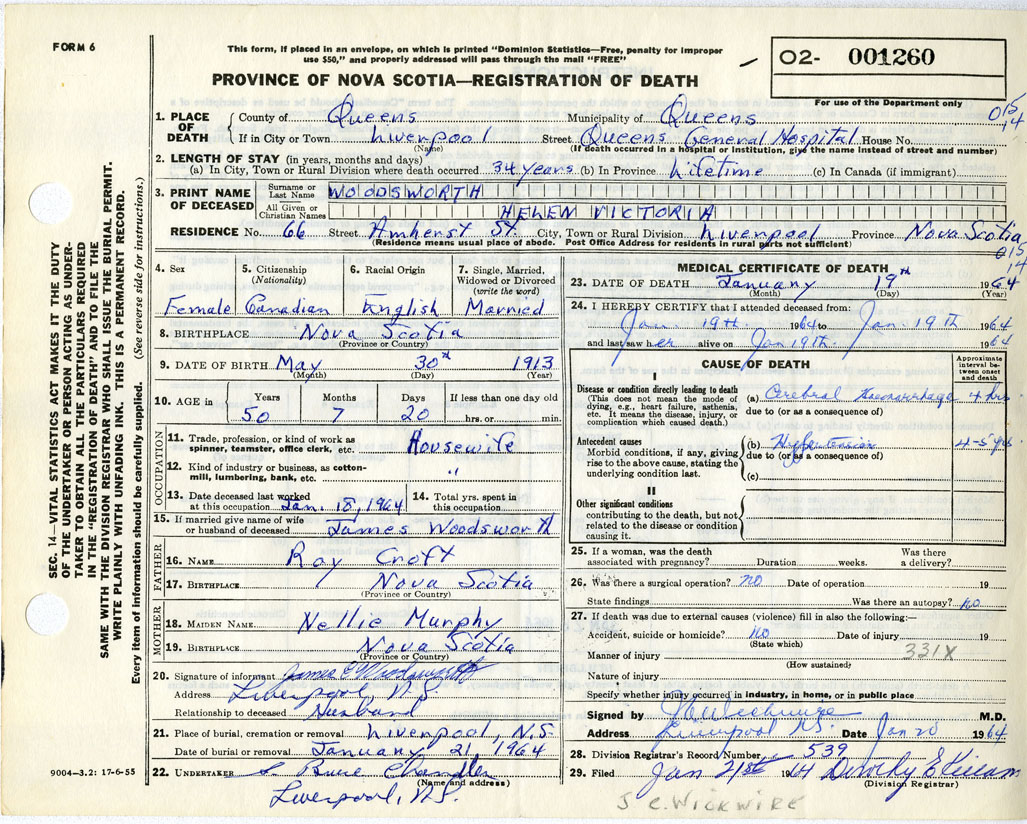 FORM 6
This form, if placed in an envelope, on which is printed "Dominion Statistics—Free, penalty for improper
use $50," and properly addressed will pass through the mail "FREE"
02- 001260
For use of the Department only
PROVINCE OF NOVA SCOTIA—REGISTRATION OF DEATH
015
14
1. PLACE OF DEATH { County of Queens Municipality of Queens
If in City or Town Liverpool Street Queens General Hospital House No.
(Name) (If death occurred in a hospital or institution, give the name instead of street and number)
2. LENGTH OF STAY (in years, months and days)
(a) In City, Town or Rural Division where death occurred 34 years (b) In Province Lifetime (c) In Canada (if immigrant)
3. PRINT NAME OF DECEASED { Surname or Last Name WOODSWORTH
All Given or Christian Names HELEN VICTORIA
RESIDENCE No. 66 Street Amherst St. City, Town or Rural Division Liverpool Province Nova Scotia
(Residence means usual place of abode. Post Office Address for residents in rural parts not sufficient)
015
14
4. Sex 5. Citizenship (Nationality) 6. Racial Origin 7. Single, Married, Widowed or Divorced (write the word)
Female Canadian English Married
8. BIRTHPLACE Nova Scotia
(Province or Country)
9. DATE OF BIRTH May 30th 1913
(Month) (Day) (Year)
10. AGE in { Years Months Days If less than one day old
50 7 20 hrs. or min.
OCCUPATION
11. Trade, profession, or kind of work as spinner, teamster, office clerk, etc. Housewife
12. Kind of industry or business, as cotton-mill, lumbering, bank, etc. "
13. Date deceased last worked at this occupation Jan. 18, 1964 14. Total yrs. spent in this occupation
15. If married give name of wife or husband of deceased James Woodsworth
FATHER
16. NAME Roy Croft
17. BIRTHPLACE Nova Scotia
(Province or Country)
MOTHER
18. MAIDEN NAME Nellie Murphy
19. BIRTHPLACE Nova Scotia
(Province or Country)
20. Signature of informant James C Woodsworth
Address Liverpool, N.S.
Relationship to deceased Husband
21. Place of burial, cremation or removal Liverpool, N.S.
Date of burial or removal January 21, 1964
22. UNDERTAKER Bruce Chandler
(Name and address)
Liverpool, N.S.
MEDICAL CERTIFICATE OF DEATH
23. DATE OF DEATH January 19th 1964
(Month) (Day) (Year)
24. I HEREBY CERTIFY that I attended deceased from:
Jan. 19th. 1964 to Jan. 19th 1964
and last saw her alive on Jan 19th. 1964
CAUSE OF DEATH
Approximate interval between onset and death
I
Disease or condition directly leading to death
(This does not mean the mode of dying, e.g., heart failure, asthenia, etc. It means the disease, injury, or complication which caused death.)
(a) Cerebral Haemorrhage 4 hrs.
due to (or as a consequence of)
Antecedent causes
Morbid conditions, if any, giving rise to the above cause, stating the underlying condition last.
(b) Hypertension 4-5 yrs
due to (or as a consequence of)
(c)
II
Other significant conditions
contributing to the death, but not related to the disease or condition causing it.
25. If a woman, was the death associated with pregnancy? Duration weeks. Was there a delivery?
26. Was there a surgical operation? no Date of operation 19
State findings Was there an autopsy? no
27. If death was due to external causes (violence) fill in also the following:—
Accident, suicide or homicide? no Date of injury 19
(State which)
Manner of injury 331X
(How sustained)
Nature of injury
Specify whether injury occurred in industry, in home, or in public place
Signed by J C Wickwire M.D.
Address Liverpool NS. Date Jan 20 1964
28. Division Registrar's Record Number 539
29. Filed Jan 21st 1964 Dorothy E
(Division Registrar)
J. C. WICKWIRE
SEC. 14—VITAL STATISTICS ACT MAKES IT THE DUTY
OF THE UNDERTAKER OR PERSON ACTING AS UNDER-
TAKER TO OBTAIN ALL THE PARTICULARS REQUIRED
IN THE "REGISTRATION OF DEATH" AND TO FILE THE
SAME WITH THE DIVISION REGISTRAR WHO SHALL ISSUE THE BURIAL PERMIT.
WRITE PLAINLY WITH UNFADING INK. THIS IS A PERMANENT RECORD.
Every item of information should be carefully supplied. (See reverse side for instructions.)
9004—3.2: 17-6-55